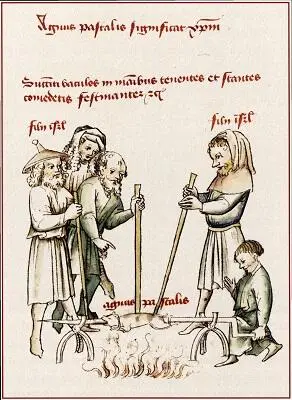 Agnus paſtalis ſignificat xpm
Succīti baculos in manibus tenentes et ſtantes
comedetis feſtinantez
filij iſrl
filij iſrl
agnus paſtalis